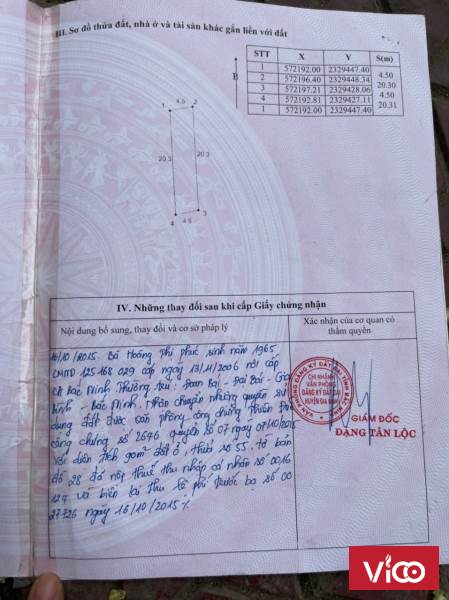 III. Sơ đồ thửa đất, nhà ở và tài sản khác gắn liền với đất
STT X Y S(m)
1 572192.00 2329447.40
4.50
2 572196.40 2329448.34
20.30
3 572197.21 2329428.06
4.50
4 572192.81 2329427.11
20.31
1 572192.00 2329447.40
B
1 4.5 2
20.3 20.3
4 4.5 3
IV. Những thay đổi sau khi cấp Giấy chứng nhận
Nội dung bổ sung, thay đổi và cơ sở pháp lý
Xác nhận của cơ quan có thẩm quyền
16/10/2015. Bà Hoàng Thị Phúc sinh năm 1965
CMND 125 168 029 cấp ngày 13/11/2006 nơi cấp
CA Bắc Ninh Thường trú: Đoan Bái - Đại Bái - Gia
Bình - Bắc Ninh. Nhận chuyển nhượng quyền sử
dụng đất được văn phòng công chứng Thiên
công chứng số 2646 quyển số 07 ngày 07/10/2015
với diện tích 90m² đất ở, thửa số 55, tờ bản
đồ 28 đã nộp thuế thu nhập cá nhân số 0016
124 và biên lai thu lệ phí trước bạ số 00
27726 ngày 16/10/2015
VĂN PHÒNG ĐĂNG KÝ ĐẤT ĐAI TỈNH BẮC NINH
CHI NHÁNH
VĂN PHÒNG
ĐĂNG KÝ ĐẤT ĐAI
HUYỆN GIA BÌNH
GIÁM ĐỐC
ĐẶNG TẤN LỘC
Vi